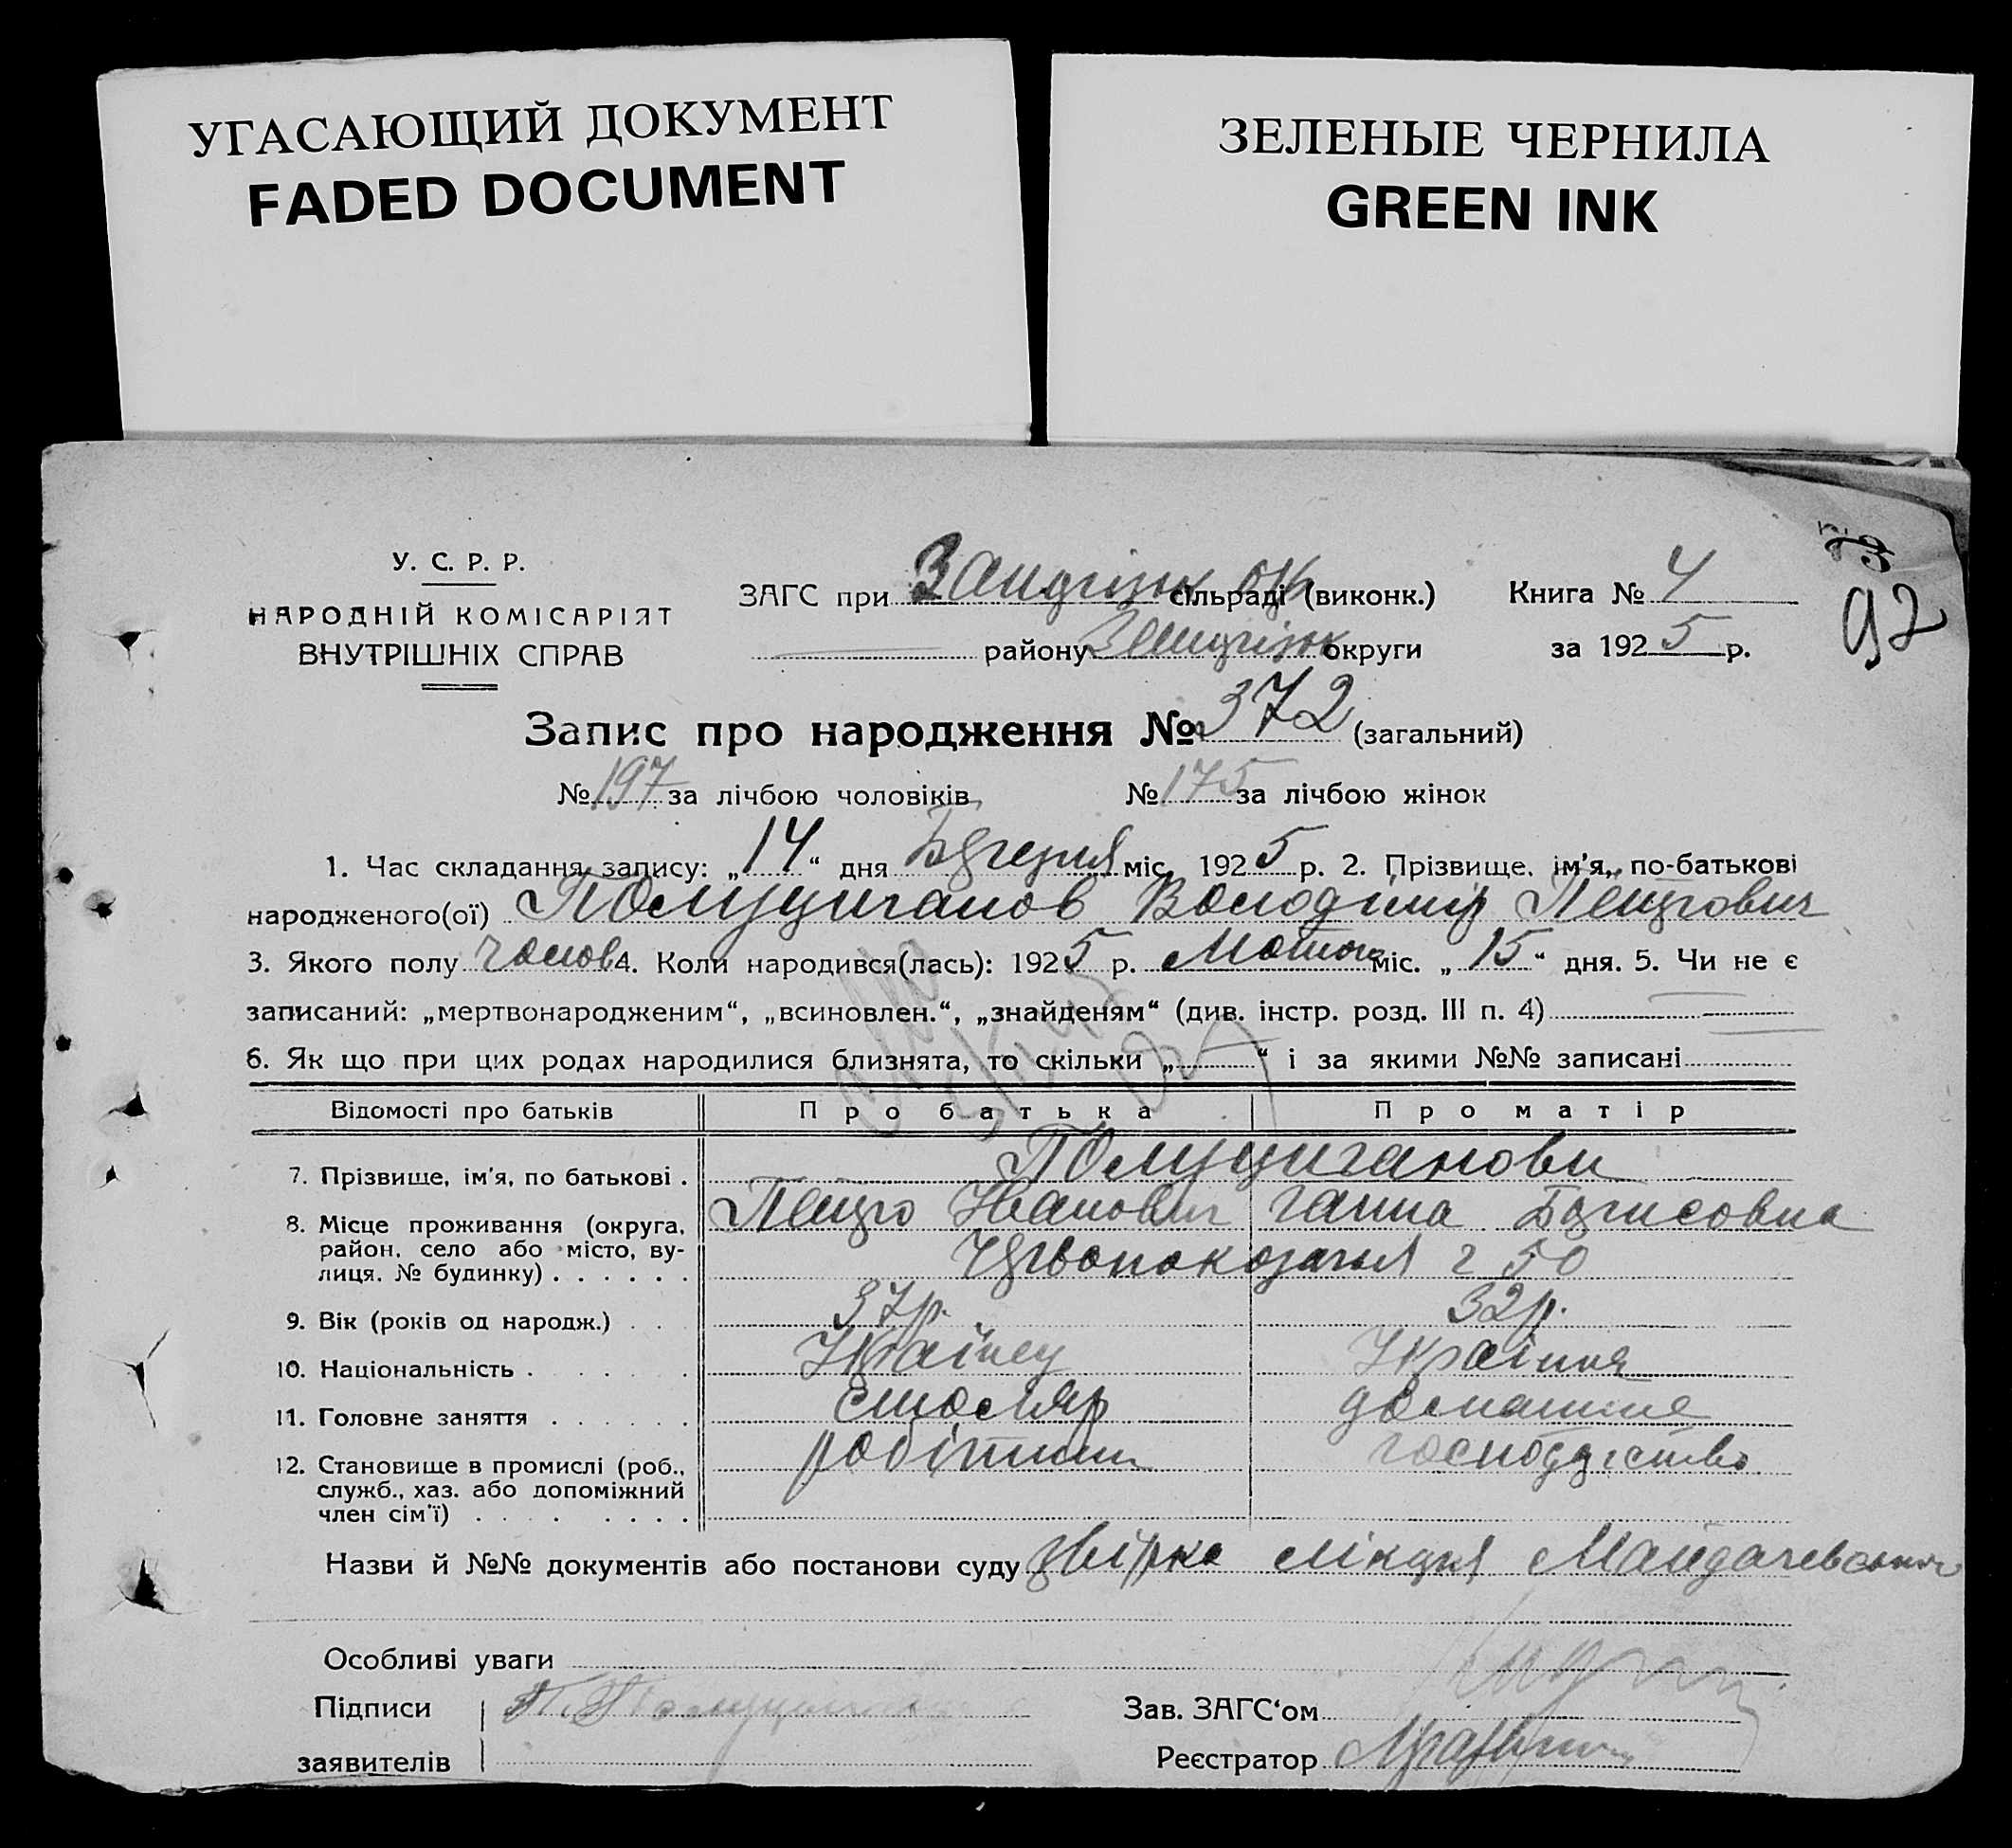 УГАСАЮЩИЙ ДОКУМЕНТ
FADED DOCUMENT
ЗЕЛЕНЫЕ ЧЕРНИЛА
GREEN INK
92
У. С. Р. Р.
НАРОДНІЙ КОМІСАРІЯТ
ВНУТРІШНІХ СПРАВ
ЗАГС при сільраді (виконк.)
району округи
Книга № 4
за 1925 р.
Запис про народження № 372 (загальний)
№ 197 за лічбою чоловіків № 175 за лічбою жінок
1. Час складання запису: „14“ дня Березня міс. 1925 р. 2. Прізвище, ім'я, по-батькові
народженого(ої) Полуциганов Володімір Петрович
3. Якого полу чолов 4. Коли народився(лась): 1925 р. Лютого міс. „15“ дня. 5. Чи не є
записаний: „мертвонародженим“, „всиновлен.“, „знайденям“ (див. інстр. розд. III п. 4)
6. Як що при цих родах народилися близнята, то скільки „—“ і за якими №№ записані
Відомості про батьків Про батька Про матір
7. Прізвище, ім'я, по батькові . Полуциганови
Петро Іванович Ганна Борисовна
8. Місце проживання (округа, район, село або місто, ву-
лиця, № будинку) . . . . . . 50
9. Вік (років од народж.) . . 37р. 32р.
10. Національність . . . . . . Українец Українка
11. Головне заняття . . . . . . столяр домашнє
12. Становище в промислі (роб., робітник господарство
служб., хаз. або допоміжний
член сім'ї) . . . . . . . .
Назви й №№ документів або постанови суду довірка лікаря
Особливі уваги
Підписи Зав. ЗАГС‘ом
заявителів Реєстратор